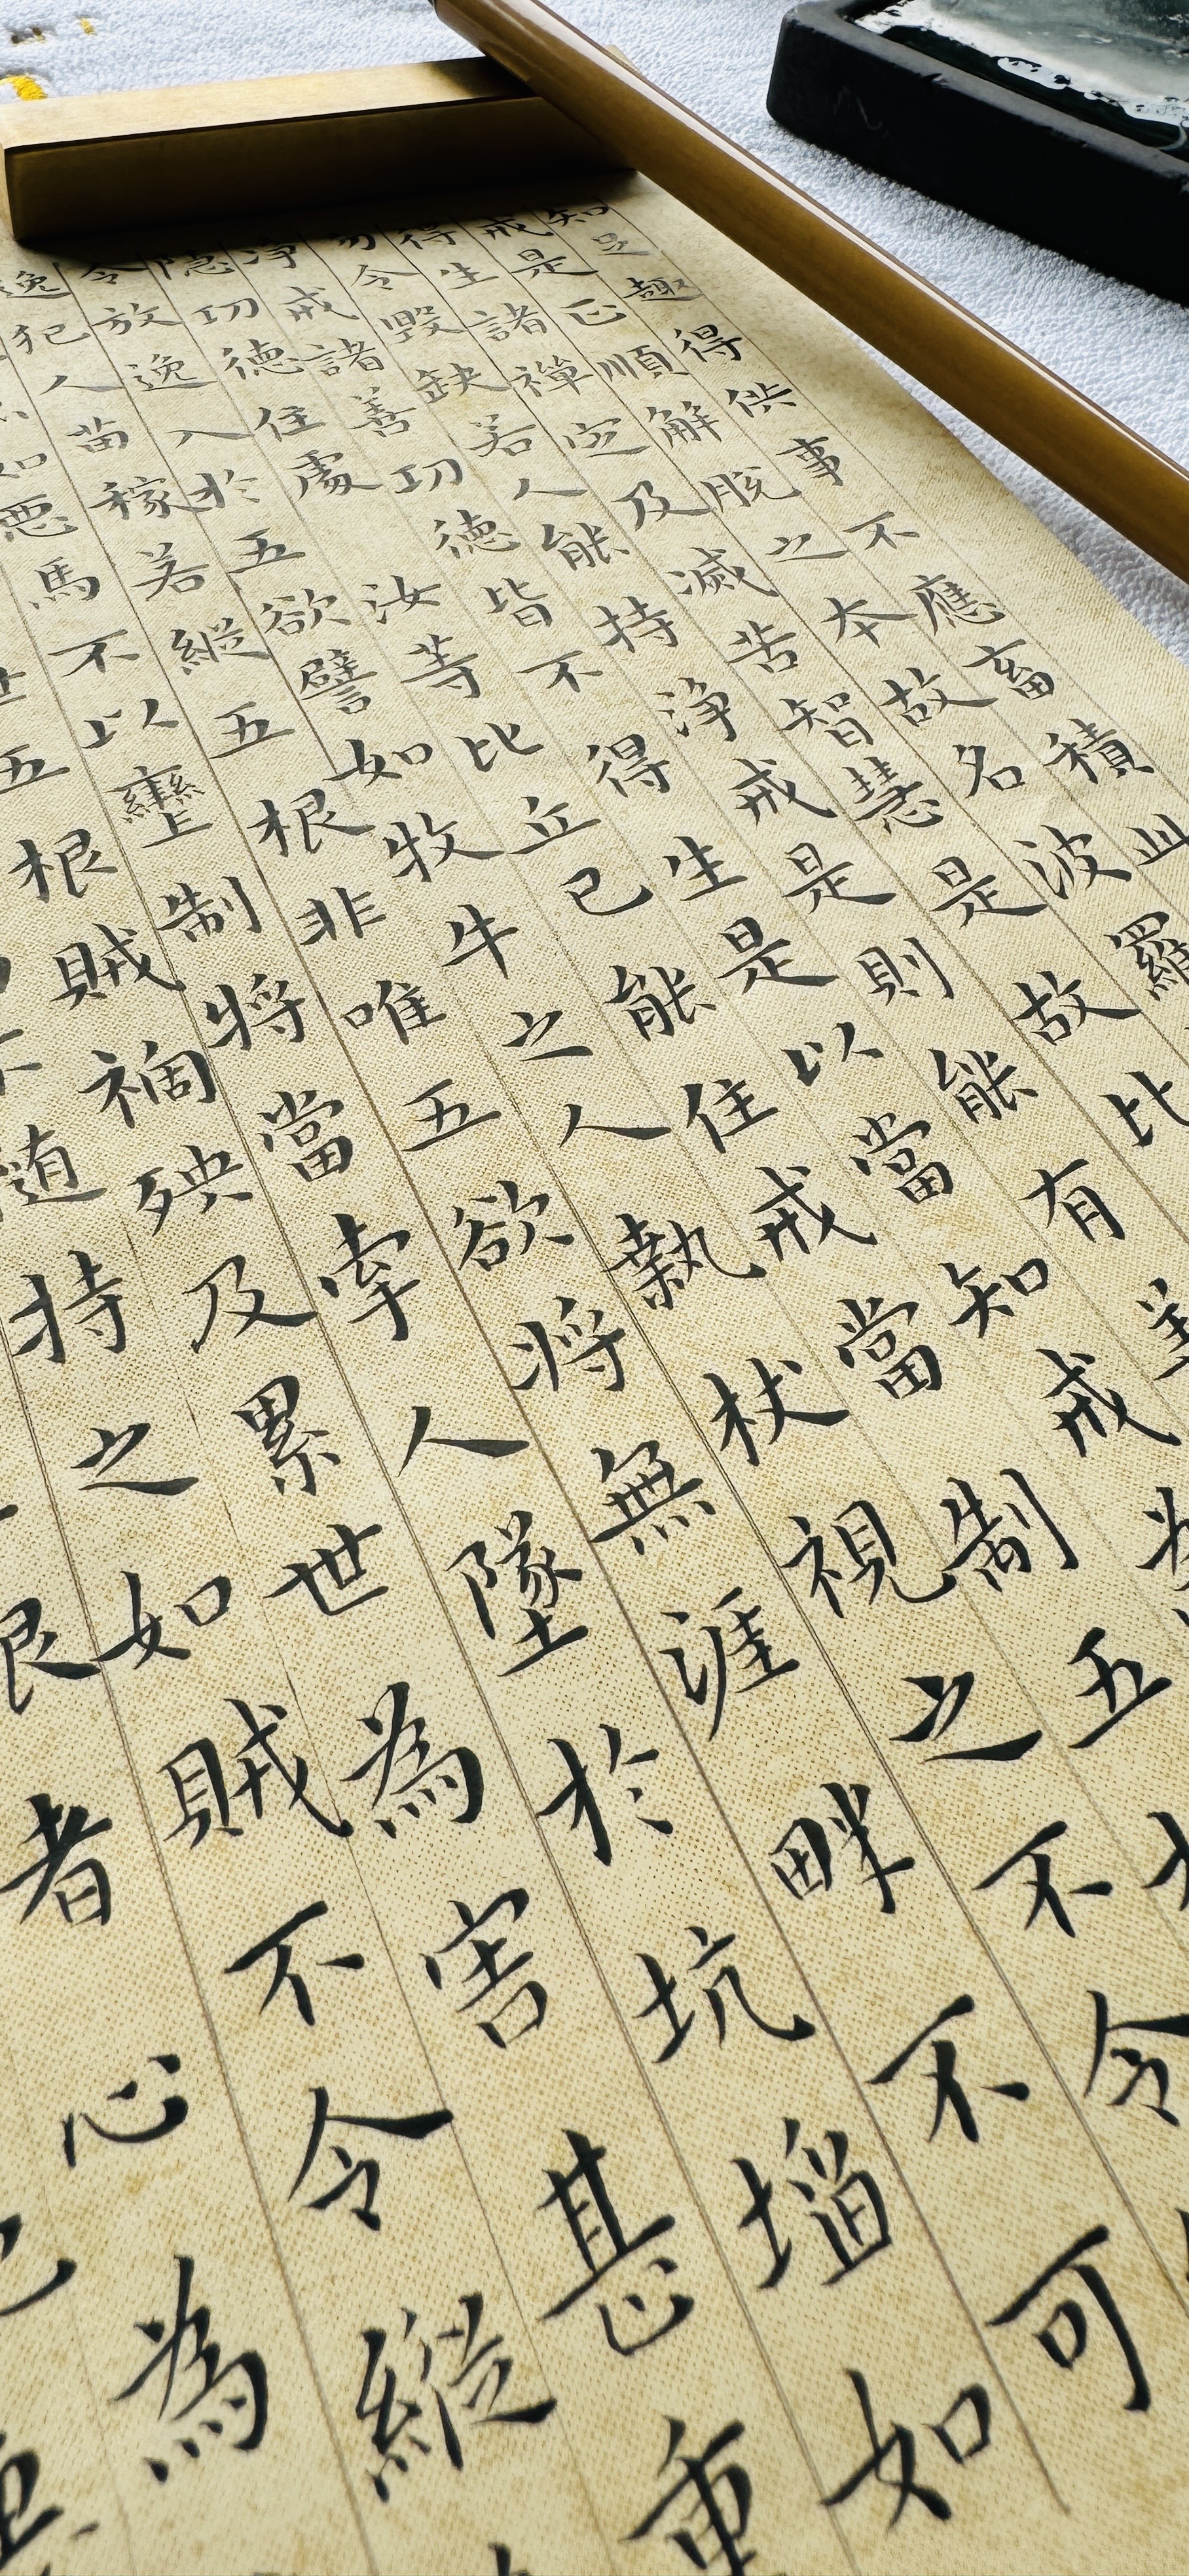 知足趣得供事不應畜積此
戒是正順解脫之本故名波羅
得生諸禪定及滅苦智慧是故比
勿令毀缺若人能持淨戒是則能有善
淨戒諸善功德皆不得生是以當知戒為
隱功德住處 汝等比丘已能住戒當制五
令放逸入於五欲譬如牧牛之人執杖視之不令
逸犯人苗稼若縱五根非唯五欲將無涯畔不可
如惡馬不以轡制將當牽人墜於坑堖如
世五根賊禍殃及累世為害甚重
不隨持之如賊不令縱
根者心為